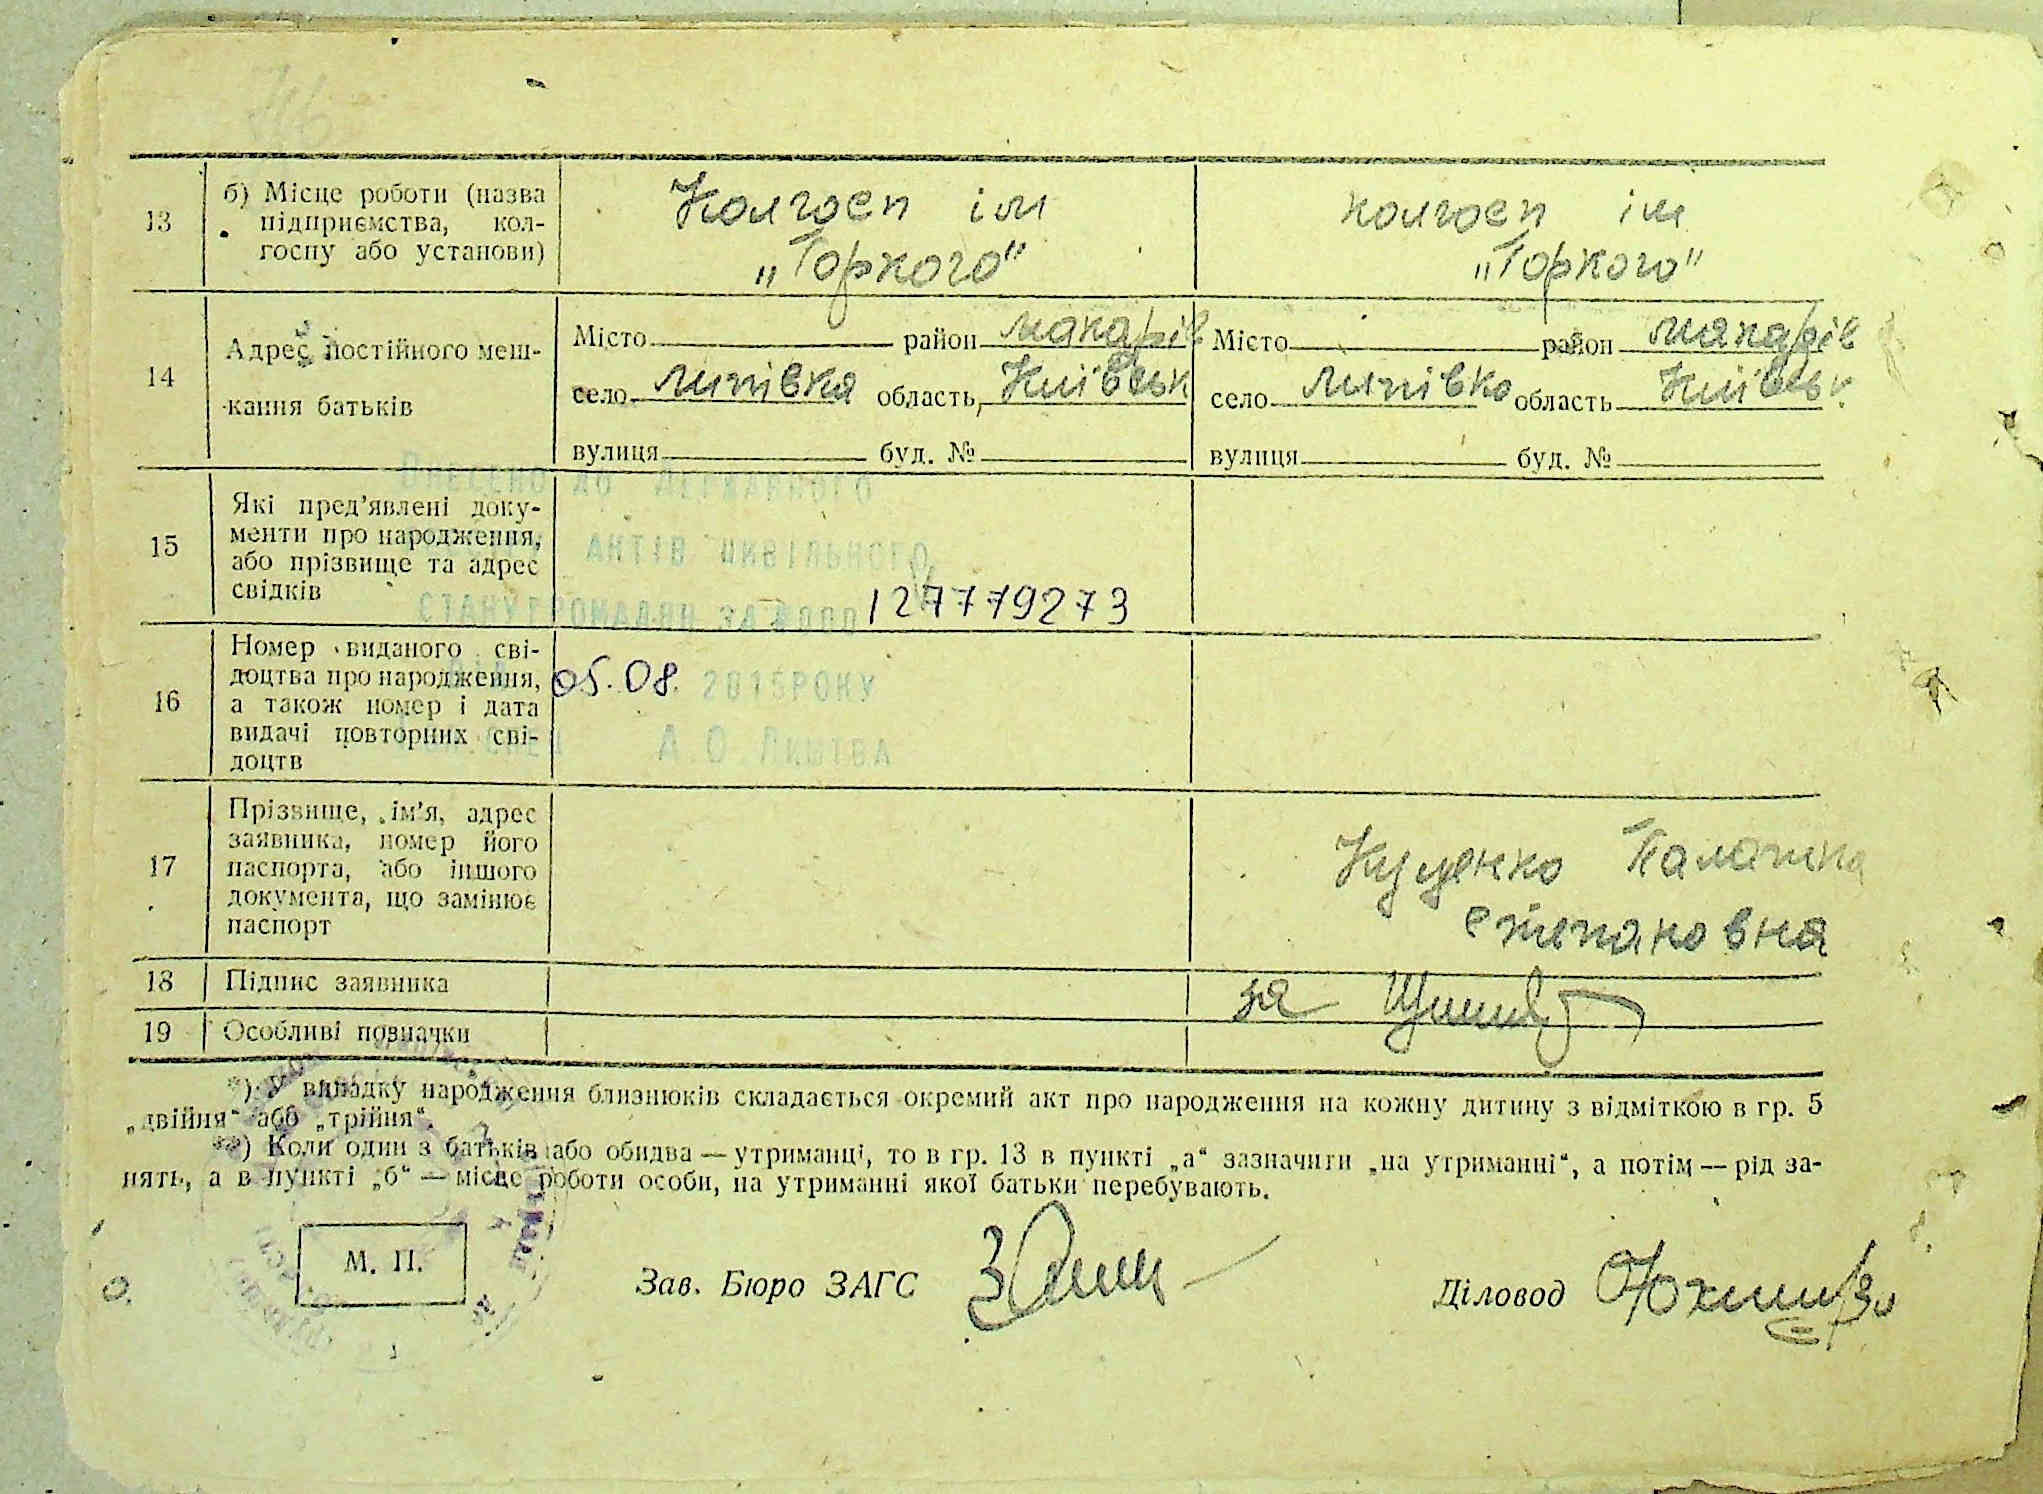 13
б) Місце роботи (назва
підприємства, кол-
госпу або установи)
Колгосп ім
„Горкого"
колгосп ім
„Горкого"
14
Адрес постійного меш-
кання батьків
Місто район Макарів
село Липівка область Київськ
вулиця буд. №
Місто район Макарів
село Липівка область Київськ
вулиця буд. №
15
Які пред’явлені доку-
менти про народження,
або прізвище та адрес
свідків
Внесено до Державного
актів цивільного
стану громадян за №
127779273
16
Номер виданого сві-
доцтва про народження,
а також номер і дата
видачі повторних сві-
доцтв
05.08. 2015 року
А.О. Лиштва
17
Прізвище, ім’я, адрес
заявника, номер його
паспорта, або іншого
документа, що замінює
паспорт
Куценко
степановна
18
Підпис заявника
за
19
Особливі позначки
*) У випадку народження близнюків складається окремий акт про народження на кожну дитину з відміткою в гр. 5
„двійня“ або „трійня“.
**) Коли один з батьків або обидва — утриманці, то в гр. 13 в пункті „а“ зазначити „на утриманні“, а потім — рід за-
нять, а в пункті „б“ — місце роботи особи, на утриманні якої батьки перебувають.
М. П.
Зав. Бюро ЗАГС
Діловод